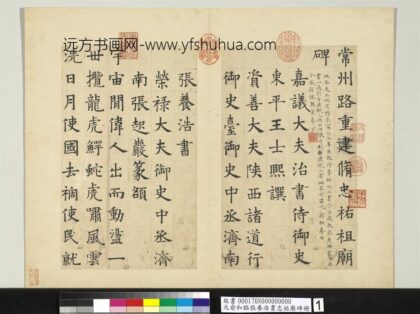 远方书画网-www.yfshuhua.com
常州路重建脩忠祐祖廟
碑
嘉議大夫治書侍御史
東平王士熙譔
資善大夫陝西諸道行
御史臺御史中丞濟南
張養浩書
榮禄大夫御史中丞濟
南張起巖篆額
宇宙間偉人出而動盪一
世攬龍虎鰐蛇虎嘯風雲
洗日月使國去禍使民就
故書000176N000000000
元俞和臨張養浩書忠祐廟碑冊
1